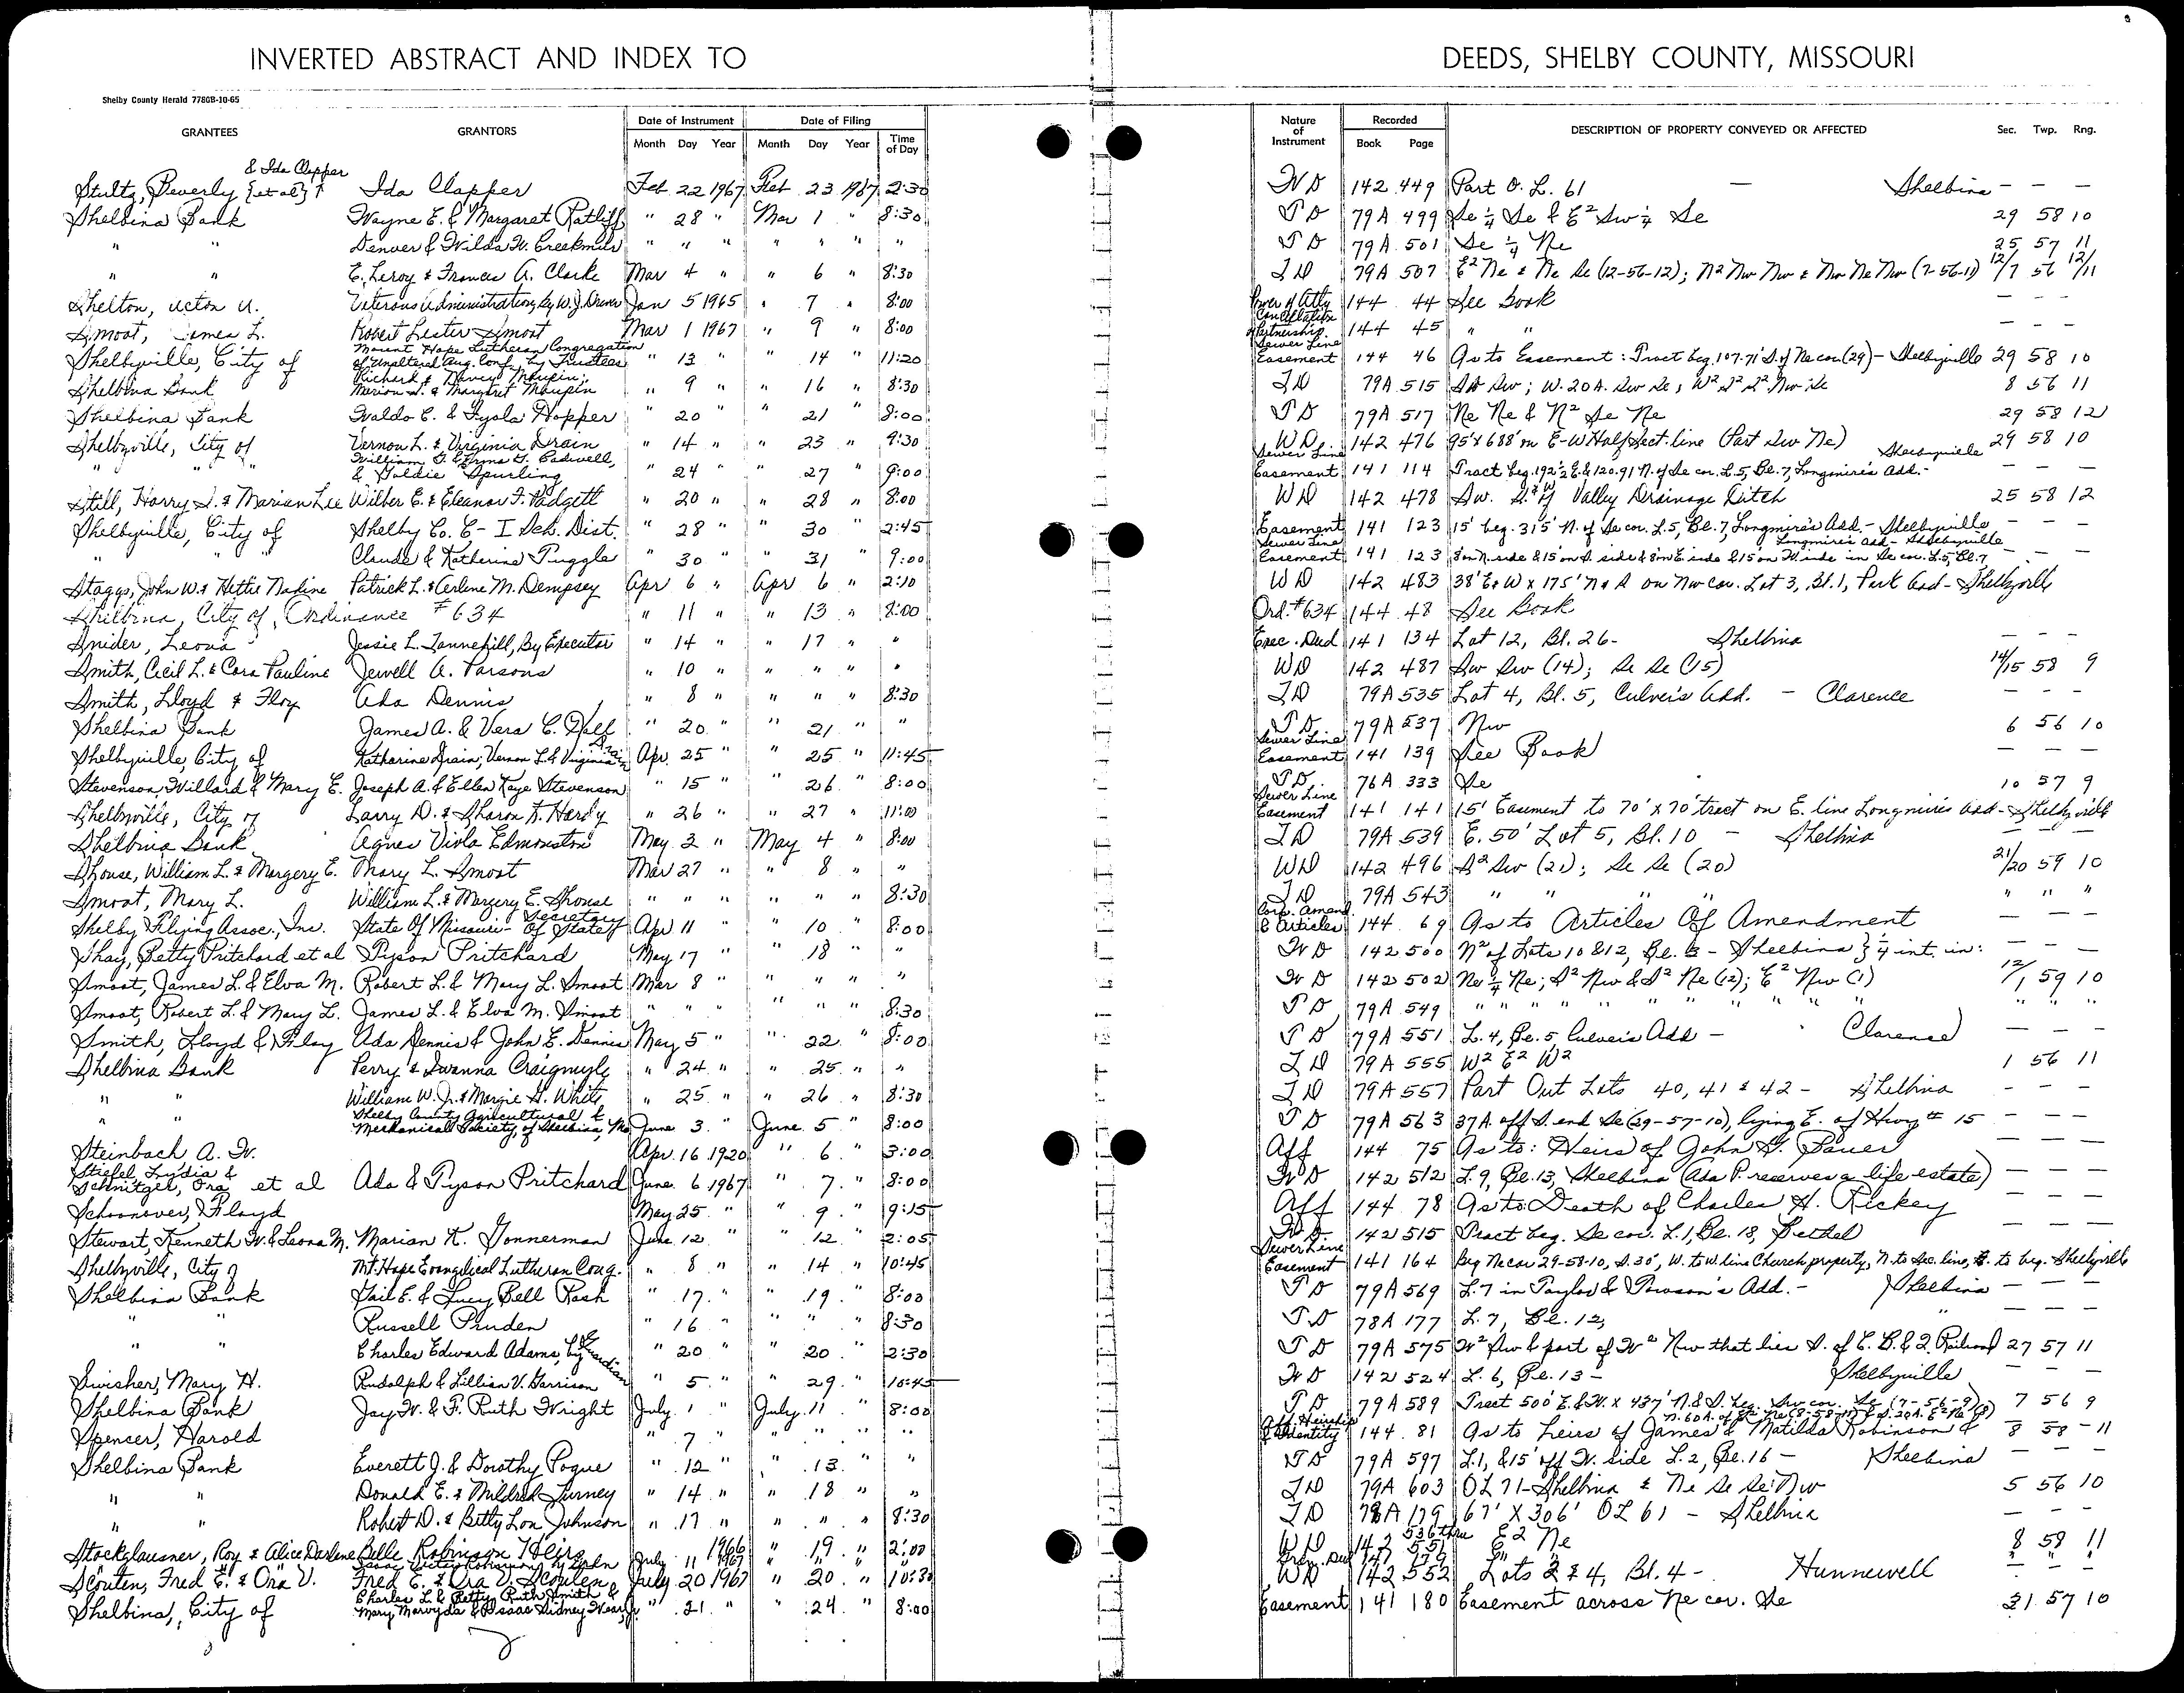 INVERTED ABSTRACT AND INDEX TO DEEDS, SHELBY COUNTY, MISSOURI
Shelby County Herald 7780B-10-65
GRANTEES GRANTORS Date of Instrument Month Day Year Date of Filing Month Day Year Time of Day Nature of Instrument Recorded Book Page DESCRIPTION OF PROPERTY CONVEYED OR AFFECTED Sec. Twp. Rng.
& Ida Clapper
Stultz, Beverly {et al} ↑ Ida Clapper Feb 22 1967 Feb 23 1967 2:30 WD 142 449 Part O. L. 61 — Shelbina - - -
Shelbina Bank Wayne E. & Margaret Ratliff " 28 " Mar 1 " 8:30 TD 79A 499 Se ¼ Se & E² Sw ¼ Se 29 58 10
" " Denver & Wilda W. Creekmur " " " " " " " TD 79A 501 Se ¼ Ne 25 57 11
" " E. Leroy & Frances A. Clarke Mar 4 " " 6 " 8:30 TD 79A 507 E² Ne & Ne Se (12-56-12); N² Nw Nw & Nw Ne Nw (7-56-11) 12/7 56 12/11
Shelton, Acton A. Veterans Administration, by W. J. Driver Jan 5 1965 " 7 " 8:00 Power of Atty 144 44 See Book - - -
Smoot, James L. Robert Lester Smoot Mar 1 1967 " 9 " 8:00 Cancellation of Partnership 144 45 " " - - -
Shelbyville, City of Mount Hope Lutheran Congregation of Unaltered Aug. Conf. by Trustees " 13 " 14 " 11:20 Sewer Line Easement 144 46 As to Easement: Tract beg. 107.71' S. of Ne cor (29) - Shelbyville 29 58 10
Shelbina Bank Richard & Nancy Maupin; Marion S. & Margaret Maupin " 9 " " 16 " 8:30 TD 79A 515 Sw; W. 20 A. Sw Se; W² S² S² Nw Se 8 56 11
Shelbina Bank Waldo E. & Fyola Hopper " 20 " 21 " 8:00 TD 79A 517 Ne Ne & N² Se Ne 29 58 12
Shelbyville, City of Vernon L. & Virginia Drain " 14 " " 23 " 9:30 WD 142 476 95' x 688' on E-W Half Sect. line (Part Sw Ne) Shelbyville 29 58 10
" " " William G. & Erma G. Cadwell, & Goldie Spurling " 24 " 27 " 9:00 Sewer Line Easement 141 114 Tract beg. 192½ E. & 120.91 N. of Se cor. L. 5, Bl. 7, Longmire's Add. - - - -
Still, Harry S. & Marian Lee Wilber E. & Eleanor F. Padgett " 20 " " 28 " 8:00 WD 142 478 Sw. S. & W of Valley Drainage Ditch 25 58 12
Shelbyville, City of Shelby Co. C-I Sch. Dist. " 28 " " 30 2:45 Easement 141 123 15' beg. 315' N. of Se cor. L. 5, Bl. 7, Longmire's Add. - Shelbyville - - -
" " " Claude & Katherine Puggle " 30 " " 31 " 9:00 Sewer Line Easement 141 123 8' on N. side & 15' on S. side & 8' on E. side & 15' on W. side in Se cor. L. 5, Bl. 7 Longmire's add - Shelbyville - -
Staggs, John W. & Hettie Nadine Patrick L. & Arlene M. Dempsey Apr 6 " Apr 6 " 2:10 WD 142 483 38' E & W x 175' N & S on Nw cor. Lot 3, Bl. 1, Park Add - Shelbyville
Shelbina, City of, Ordinance # 634 " 11 " " 13 " 8:00 Ord. # 634 144 48 See Book
Snider, Leona Jessie L. Tannehill, By Executor " 14 " " 17 " " Exec. Deed 141 134 Lot 12, Bl. 26- Shelbina - - -
Smith, Cecil L. & Cora Pauline Jewell A. Parsons " 10 " " " " " WD 142 487 Sw Sw (14); Se Se (15) 14/15 58 9
Smith, Lloyd & Floy Ada Dennis " 8 " " " " 8:30 TD 79A 535 Lot 4, Bl. 5, Culver's Add. - Clarence - - -
Shelbina Bank James A. & Vera C. Hall " 20 " " 21 " " TD 79A 537 Nw 6 56 10
Shelbyville, City of Katharine Drain; Vernon L. & Virginia Drain Apr. 25 " " 25 " 11:45 Sewer Line Easement 141 139 See Book - - -
Stevenson, Willard & Mary E. Joseph A. & Ellen Kaye Stevenson " 15 " " 26 " 8:00 TD 76A 333 Se 10 57 9
Shelbyville, City of Larry D. & Sharon K. Hardy " 26 " " 27 " 11:00 Sewer Line Easement 141 141 15' Easement to 70' x 70' tract on E. line Longmire's Add - Shelbyville
Shelbina Bank Agnes Viola Edmonston May 2 " May 4 " 8:00 TD 79A 539 E. 50' Lot 5, Bl. 10 - Shelbina - - -
Shouse, William L. & Margery E. Mary L. Smoot Mar 27 " " 8 " " WD 142 496 S² Sw (21); Se Se (20) 21/20 59 10
Smoot, Mary L. William L. & Margery E. Shouse " " " " " " 8:30 TD 79A 543 " " " " " " " "
Shelby Flying Assoc., Inc. State Of Missouri - Secretary Of State Apr 11 " 10 " 8:00 Corp. Amend. & Articles 144 69 As to Articles Of Amendment - - -
Shay, Betty Pritchard et al Tyson Pritchard May 17 " " 18 " " WD 142 500 N² of Lots 10 & 12, Bl. 3 - Shelbina } ¼ int. in: - - -
Smoot, James L. & Elva M. Robert L. & Mary L. Smoot Mar 8 " " " " " WD 142 502 Ne ¼ Ne; S² Nw & S² Ne (12); E² Nw (1) 12/1 59 10
Smoot, Robert L. & Mary L. James L. & Elva M. Smoot " " " " " " 8:30 TD 79A 549 " " " " " " " " " " "
Smith, Lloyd & Floy Ada Dennis & John E. Dennis May 5 " " 22 " 8:00 TD 79A 551 L. 4, Bl. 5, Culver's Add - Clarence - - -
Shelbina Bank Perry & Iwanna Craigmyle " 24 " " 25 " " TD 79A 555 W² E² W² 1 56 11
" " William W. Jr. & Margie H. White " 25 " " 26 " 8:30 TD 79A 557 Part Out Lots 40, 41 & 42 - Shelbina - - -
" " Shelby County Agricultural & Mechanical Society, of Shelbina, Mo June 3 " June 5 " 8:00 TD 79A 563 37A. off S. end Se (29-57-10), lying E. of Hwy # 15 - - -
Steinbach A. W. Apr. 16 1920 " 6 " 3:00 Aff 144 75 As to: Heirs of John G. Bauer - - -
Stiefel, Lydia & Schnitzel, Ora et al Ada & Tyson Pritchard June 6 1967 " 7 " 8:00 WD 142 512 L. 9, Bl. 13, Shelbina (Ada P. reserves a life estate) - - -
Schoonover, Floyd May 25 " " 9 " 9:15 Aff 144 78 As to Death of Charles H. Rickey - - -
Stewart, Kenneth W. & Leona M. Marian K. Gonnerman June 12 " " 12 " 2:05 WD 142 515 Tract beg. Se cor. L. 1, Bl. 18, Bethel - - -
Shelbyville, City of Mt. Hope Evangelical Lutheran Cong. " 8 " " 14 " 10:45 Sewer Line Easement 141 164 Beg Ne cor 29-58-10, S. 30', W. to W. line Church property, N. to Sec. line, E. to beg. Shelbyville
Shelbina Bank Gail E. & Lucy Bell Rash " 17 " " 19 " 8:00 TD 79A 569 L. 7 in Taylor & Towson's Add. - Shelbina - - -
" " Russell Pruden " 16 " " " " 8:30 TD 78A 177 L. 7, Bl. 12, " - - -
" " Charles Edward Adams, by Guardian " 20 " " 20 " 2:30 TD 79A 575 W² Sw & part of W² Nw that lies S. of C. B. & Q. Railroad 27 57 11
Swisher, Mary H. Rudolph & Lillian V. Garrison " 5 " " 29 " 10:45 WD 142 524 L. 6, Bl. 13 - Shelbyville - - -
Shelbina Bank Jay W. & F. Ruth Wright July 1 " July 11 " 8:00 TD 79A 589 Tract 500' E. & W. x 437' N. & S. beg. Sw cor. Se (7-56-9) 7 56 9
Spencer, Harold " 7 " " " " " Aff. Heirship & Identity 144 81 As to heirs of James & Matilda Robinson 8 58 11
Shelbina Bank Everett J. & Dorothy Pogue " 12 " " 13 " " TD 79A 597 L. 1, & 15' off W. side L. 2, Bl. 16 - Shelbina - - -
" " Donald E. & Mildred Turney " 14 " " 18 " " TD 79A 603 OL 71 - Shelbina & Ne Se Se Nw 5 56 10
" " Robert D. & Betty Lou Johnson " 17 " " " " 8:30 TD 78A 179 67' X 306' OL 61 - Shelbina - - -
Stockglausner, Roy & Alice Darlene Belle Robinson Heirs 1966 " 19 " 2:00 WD 142 536 thru 551 E2 Ne 8 58 11
July 11 1967 " " " Grdn. Deed 141 179 " " " " "
Scouten, Fred E. & Ora V. Fred E. & Ora V. Scouten July 20 1967 " 20 " 10:30 WD 142 552 Lots 2 & 4, Bl. 4 - Hunnewell - - -
Shelbina, City of Charles L. & Betty Ruth Smith & Mary Marvyda & Isaac Sidney Wear, Jr. " 21 " " 24 " 8:00 Easement 141 180 Easement across Ne cor. Se 31 57 10